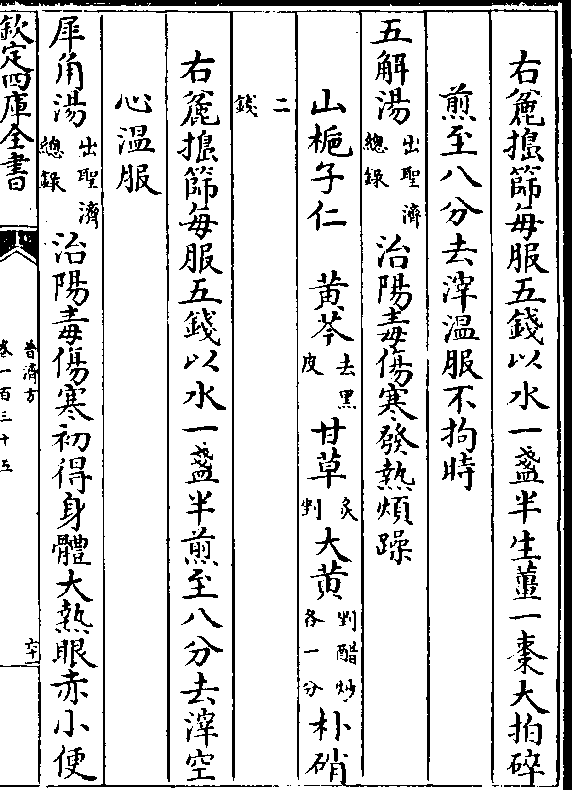 右麄搗篩每服五錢以水一盞半生薑一棗大拍碎
煎至八分去滓溫服不拘時
五解湯出聖濟總錄治陽毒傷寒發熱煩躁
山梔子仁 黃芩去黑皮甘草炙剉大黃剉醋炒各一分朴硝
二錢
右麄搗篩每服五錢以水一盞半煎至八分去滓空
心溫服
犀角湯出聖濟總錄治陽毒傷寒初得身體大熱眼赤小便
欽定四庫全書
普濟方
卷一百三十五